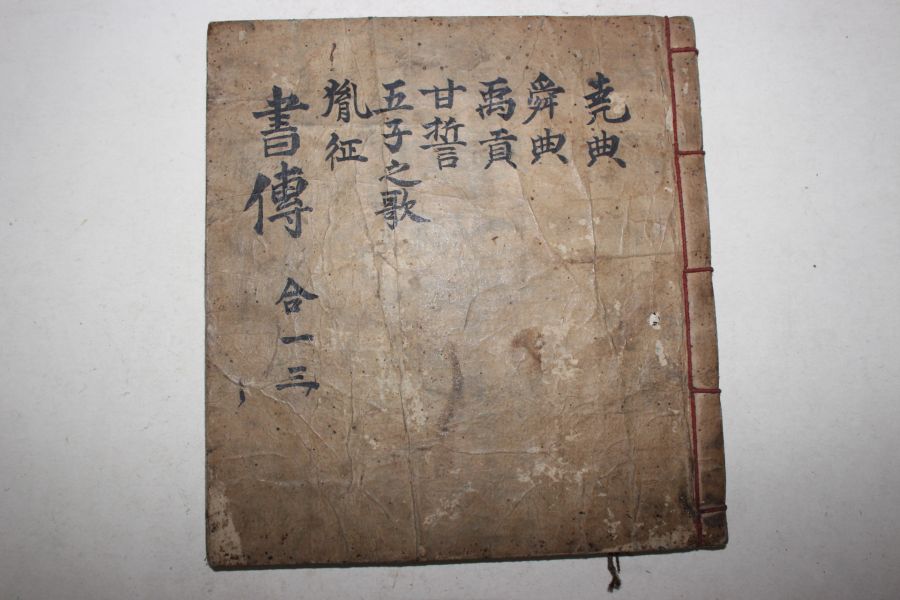 堯典
舜典
禹貢
甘誓
五子之歌
胤征
書傳
合一三